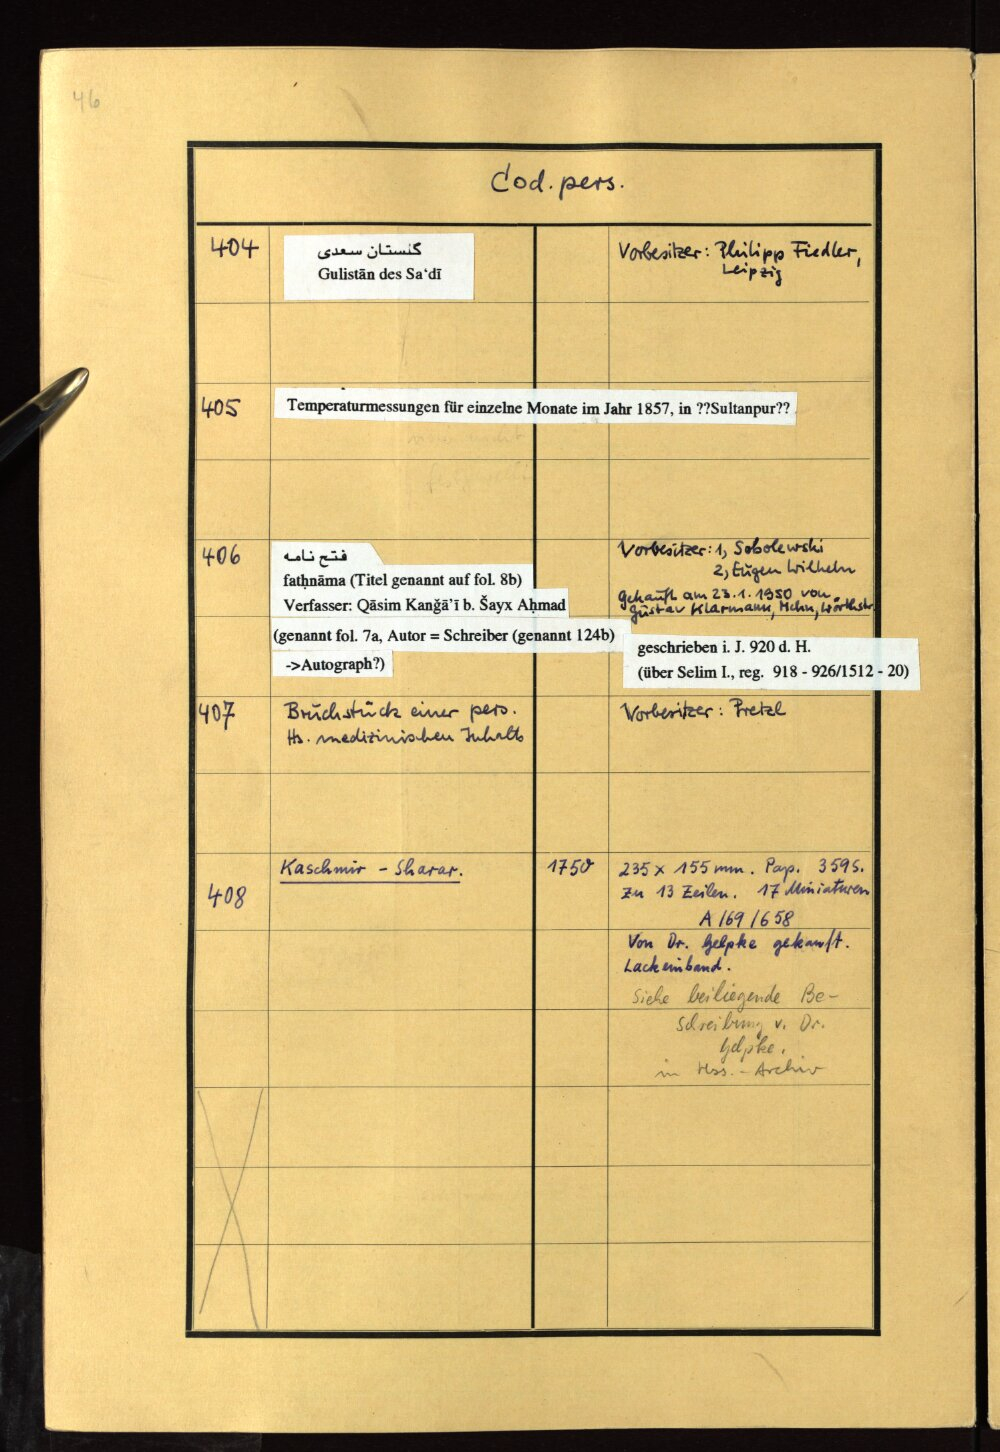 46
Cod. pers.
404
گلستان سعدی
Gulistān des Sa‘dī
Vorbesitzer: Philipp Fiedler,
Leipzig
405
Temperaturmessungen für einzelne Monate im Jahr 1857, in ??Sultanpur??
406
فتح نامه
fatḥnāma (Titel genannt auf fol. 8b)
Verfasser: Qāsim Kanǧā’ī b. Šayx Aḥmad
(genannt fol. 7a, Autor = Schreiber (genannt 124b)
->Autograph?)
Vorbesitzer: 1, Sobolewski
2, Eugen Wilhelm
Gekauft am 23.1.1950 von
Gustav Klarmann, Mchn, Wörthstr.
geschrieben i. J. 920 d. H.
(über Selim I., reg. 918 - 926/1512 - 20)
407
Bruchstück einer pers.
Hs. medizinischen Inhalts
Vorbesitzer: Pretzl
408
Kaschmir - Sharar.
1750
235 x 155 mm. Pap. 359 S.
zu 13 Zeilen. 17 Miniaturen
A/69/658
Von Dr. Gelpke gekauft.
Lackeinband.
Siehe beiliegende Be-
schreibung v. Dr.
Gelpke.
im Hss.-Archiv